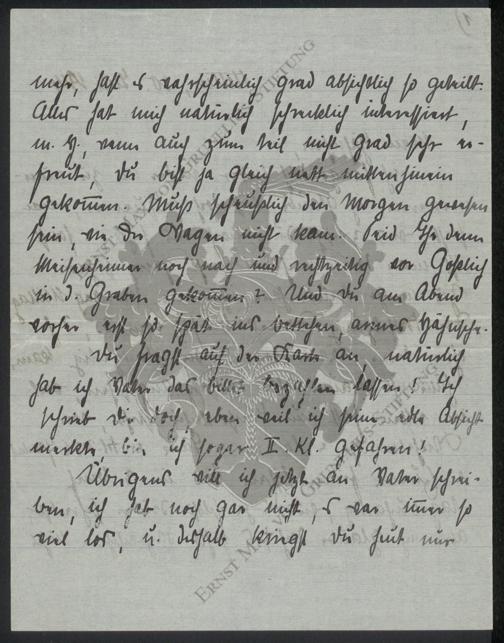 1)
mehr, hast es wahrscheinlich grad absichtlich so geteilt.
Alles hat mich natürlich schrecklich interessiert,
wenn auch zum teil nicht grad sehr er-
freut, du bist ja gleich nett mittenhinein
gekommen. Muß scheußlich den Morgen gewesen
sein, wie der Wagen nicht kam. Seid Ihr denn
noch nach und rechtzeitig vor
in d. Graben gekommen? Und du am Abend
vorher erst so spät ins bettchen, armes
Du fragst auf der Karte an. natürlich
hab ich Vater das billet bezahlen lassen! Ich
schrieb dir doch, eben weil ich seine edle Absicht
merkte, bin ich sogar II. Kl. gefahren!
Übrigens will ich jetzt an Vater schrei-
ben, ich hab noch gar nicht, es war immer so
viel los, u. deshalb kriegst du heut nur
ERNST MAX VON GRUNELIUS-STIFTUNG
ERNST MAX VON GRUNELIUS-STIFTUNG